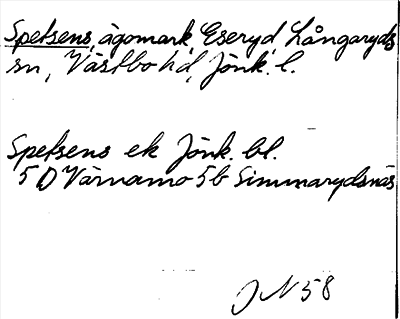 Spetsens, ägomark, Eseryd, Långaryds
sn, Västbo hd, Jönk. l.
Spetsens ek Jönk. bl.
5 D Värnamo 5b Simmarydsnäs
JN 58